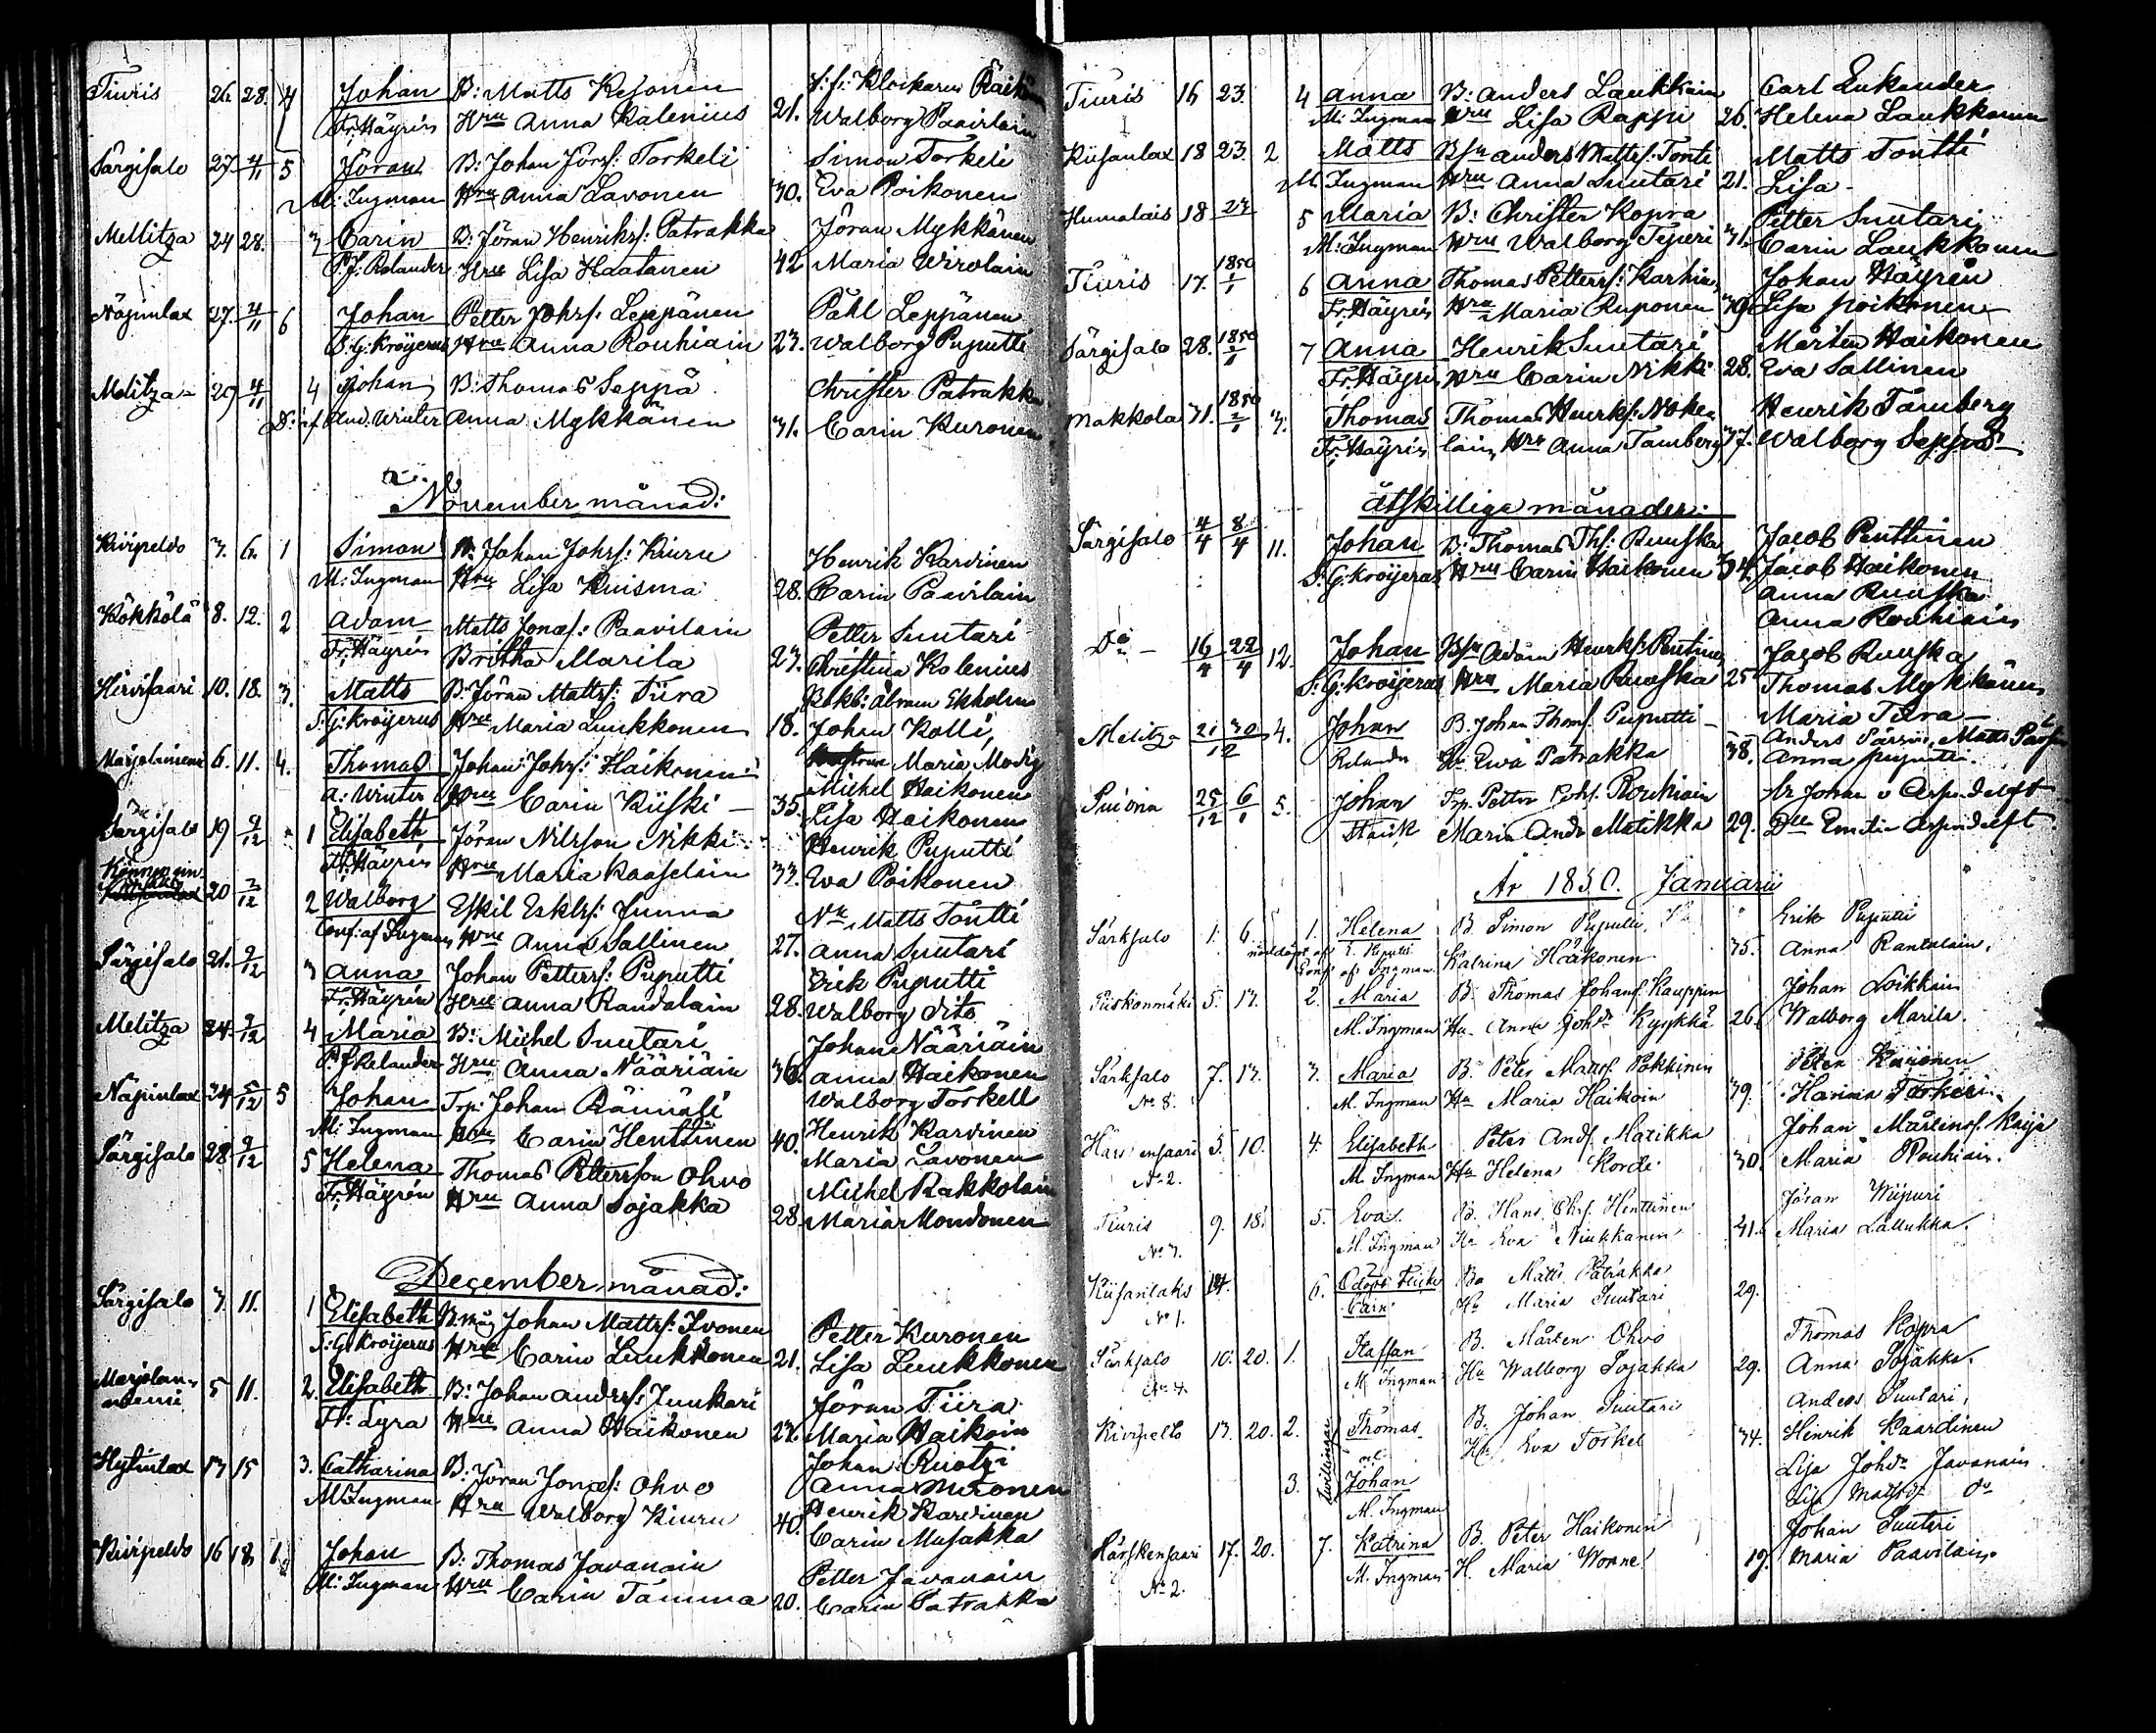 Tiuris 26. 28. 4 Johan B: Matts Kesonen
Fr: Häyrén Hru Anna Kalenius 21. Walborg Paavilain
Särgisalo 27. 4/11 5 Jöran B: Johan Jörs: Torkeli Simon Torkeli
M: Ingman Hru Anna Lavonen 30. Eva Poikonen
Mellitza 24 28. 3 Carin B: Jöran Henriks: Patrakka Jöran Mykkänen
P.J. Relander Hru Lisa Haatanen 42 Maria Wirolain
Näpinlax 27. 4/11 6 Johan Petter Johs: Leppänen Påhl Leppänen
S:G: Kröijerus Hru Anna Rouhiain 23. Walborg Puputti
Melitza 29 4/11 4 Johan B: Thomas Seppä Christer Patrakka
And. Winter Anna Mykkänen 31. Carin Kuronen
November månad:
Kivipeldo 3. 6. 1 Simon B. Johan Johrs: Kiuru Henrik Kardinen
M: Ingman Hru Lisa Kuisma 28. Carin Paavilain
Kökkölä 8. 12. 2 Adam Matts Jonas: Paavilain Petter Suutari
Fr: Häyrén Britha Marila 23. Christina Kolenius
Hirvisaari 10. 18. 3. Matts B. Jöran Matts: Tiira Bokb: Abram Ekholm
S:G: Kröijerus Hru Maria Luukkonen 18. Johan Kolli,
Marjolaniemi 6. 11. 4. Thomas Johan Johrs: Haikonen Maria Modig
A: Winter Hru Carin Kiiski — 35. Michel Haikonen
Lisa Haikonen
Särgisalo 19 9/12 1 Elisabeth Jöran Nilsson Nikki Henrik Puputti
Fr: Häyrén Hru Maria Kaaselain 33. Eva Poikonen
20 2/12 2 Walborg Eskil Eskls: Junna Matts Tontti
Conf: af Ingman Hru Anna Sallinen 27. Anna Suutari
Särgisalo 21. 9/12 3 Anna Johan Petters: Puputti Erik Puputti
Fr: Häyrén Hru Anna Randalain 28. Walborg dito
Melitza 24. 9/12 4 Maria B: Michel Suutari Johan Nääriäin
P.J. Relander Hru Anna Nääriäin 36. Anna Haikonen
Näpinlax 24 5/12 5 Johan Trp: Johan Rännäli Walborg Torkell
M: Ingman Hru Carin Henttinen 40. Henrik Kardinen
Särgisalo 28 9/12 5 Helena Thomas Pettersson Ohvo Maria Lavonen
Fr: Häyrén Hru Anna Sojakka 28 Michel Rakkolain
Maria Mondonen
December månad:
Särgisalo 3. 11. 1 Elisabeth B. måg Johan Matts: Ivonen Petter Kuronen
S:G: Kröijerus Hru Carin Luukkonen 21. Lisa Luukkonen
Marjolan-
niemi 5 11. 2. Elisabeth B: Johan Anders: Junkari Jöran Tiira
Fr: Lyra Hru Anna Haikonen 27. Maria Haikoin
13 15 3. Catharina B: Jöran Jonas: Ohvo Johan Ruotzi
M: Ingman Hru Walborg Kiuru 40. Anna Mironen
Henrik Kardinen
Carin Musakka
Kivipeldo 16 18 6 Johan B: Thomas Javanain Petter Javanain
M: Ingman Hru Carin Tamma 20. Carin Patrakka
Tiuris 16 23. 4 Anna B: Anders Laukkain Carl Enkander
M: Ingman Hru Lisa Rappi 26. Helena Laukkanen
Kiisanlax 18 23. 2 Matts Bsn Anders Matts: Tonti Matts Tontti
M. Ingman Hru Anna Suutari 21. Lisa —
Humalais 18 23 5 Maria B: Christer Kopra Petter Suutari
M: Ingman Hru Walborg 31. Carin Laukkanen
Tiuris 17. 1850 1/1 6 Anna Thomas Petters: Karhu Johan Häyrén
Fr: Häyrén Hru Maria Ruponen 39. Lisa Poikonen
Särgisalo 28. 1850 2/1 7 Anna Henrik Suutari Mårten Haikonen
Fr: Häyrén Hru Carin Nikki 28. Eva Sallinen
Makkola 31. 1850 2/1 7. Thomas Thomas Henriks: Noke- Henrik Tamberg
Fr: Häyrén lain Hru Anna Tamberg 37. Walborg Seppä —
åtskillige månader:
Särgisalo 4/4 8/4 11. Johan B: Thomas Ths: Ruuska Jacob Penttinen
S:G: Kröijerus Hru Carin Haikonen 34. Jacob Haikonen
Anna Ruuska
Anna Rouhiain
Do — 16/4 22/4 12. Johan Bsn Adam Henriks: Pentinen Jacob Ruuska
S:G: Kröijerus Hru Maria Ruuska 25 Thomas Mykkänen
Maria Tiira —
Melitza 21 30/12 4. Johan B. Johan Thoms: Puputti —
Relander Hu Ewa Patrakka 38. Anna Puputti.
25/12 6/1 5. Johan Trp. Petter Johs. Rouhiain
Maria Andr Matikka 29.
År 1850. Januarii
Särksalo 1. 6. 1. Helena B. Simon Puputti, Erik Puputti
nöddöpt af E. Puputti
Conf. af Ingman. Katrina Haikonen 35. Anna Rantalain.
Puikonmäki 5. 13. 2. Maria B. Thomas Johans. Kauppin Johan Loikkain
M. Ingman Hu Anna Johdr Kyykkä 26. Walborg Marila.
Särksalo 7. 13. 3. Maria B. Peter Matts. Pokkinen Peter Kuronen
No 8. M. Ingman Hu Maria Haikoin 39.
5. 10. 4. Elisabeth Peter Ands. Matikka Johan Mårtens. Kaija
No 2. M. Ingman Hu Helena Kordi 30. Maria Rouhiain.
Tiuris 9. 18. 5. Eva. B. Hans Chrs. Henttinen Jöran Wiipuri
No 3. M. Ingman Hu Eva Niukkanen 41. Maria Lallukka.
Kiisanlaks 14. 6. Odöpt Flicke Bo Matts Patrakka
No 1. Hu Maria Suutari 29.
Särksalo 10. 20. 1. Staffan B. Mårten Ohvo Thomas Kopra
No 4. M. Ingman Hu Walborg Sojakka 29. Anna Sojakka.
Kivipelto 13. 20. 2. Thomas B. Johan Suutari Anders Suutari,
tvillingar
och Hu Eva Torkel 34. Henrik Kaardinen
3. Johan Lisa Johdr Javanain
M. Ingman Lisa Mattsdr Do
Härskensaari 17. 20. 7. Katrina B. Peter Haikonen Johan Suutari
No 2. M. Ingman H. Maria Worne 19. Maria Paavilain.